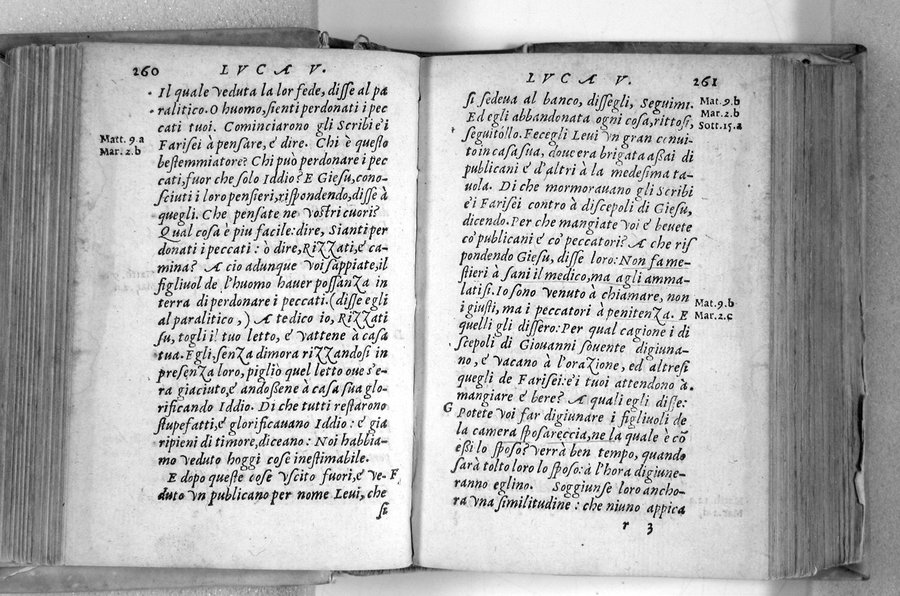 260 LVCA V.
Il quale veduta la lor fede, disse al pa
ralitico. O huomo, sienti perdonati i pec
cati tuoi. Cominciarono gli Scribi e i
Matt. 9.a
Farisei à pensare, é dire. Chi è questo
Mar. 2.b
bestemmiatore? Chi può perdonare i pec
cati, fuor che solo Iddio? E Giesu, cono-
sciuti i loro pensieri, rispondendo, disse à
quegli. Che pensate ne vostri cuori?
Qual cosa è piu facile: dire, Sianti per
donati i peccati: ò dire, RiZZati, é ca-
mina? A cio adunque voi sappiate, il
figliuol de l'huomo hauer possanZa in
terra di perdonare i peccati. (disse egli
al paralitico,) A te dico io, RiZZati
su, togli i' tuo letto, é vattene à casa
tua. Egli, senZa dimora riZZandosi in
presenZa loro, pigliò quel letto oue s'e-
ra giaciuto, é andossene à casa sua glo-
rificando Iddio. Di che tutti restarono
stupefatti, é glorificauano Iddio: é gia
ripieni di timore, diceano: Noi habbia-
mo veduto hoggi cose inestimabile.
E dopo queste cose vscito fuori, é ve- F
duto vn publicano per nome Leui, che
si
LVCA V. 261
si sedeua al banco, dissegli, Seguimi.
Mat. 9.b
Ed egli abbandonata ogni cosa, rittosi,
Mar. 2.b
seguitollo. Fecegli Leui vn gran conui-
Sott. 15.a
to in casa sua, doue era brigata assai di
publicani é d'altri à la medesima ta-
uola. Di che mormorauano gli Scribi
e i Farisei contro à discepoli di Giesu,
dicendo. Per che mangiate voi é beuete
co' publicani é co' peccatori? A che ris
pondendo Giesu, disse loro: Non fa me-
stieri à sani il medico, ma agli amma-
latisi. Io sono venuto à chiamare, non
i giusti, ma i peccatori à penitenZa. E
Mat. 9.b
Mar. 2.c
quelli gli dissero: Per qual cagione i di
scepoli di Giouanni souente digiuna-
no, é vacano à l'oraZione, ed altresi
quegli de Farisei: é i tuoi attendono à
mangiare é bere? A quali egli disse:
G
Potete voi far digiunare i figliuoli de
la camera sposareccia, ne la quale è cõ
eßi lo sposo? verrà ben tempo, quando
sarà tolto loro lo sposo: à l'hora digiune-
ranno eglino. Soggiunse loro ancho-
ra vna similitudine: che niuno appica
r 3